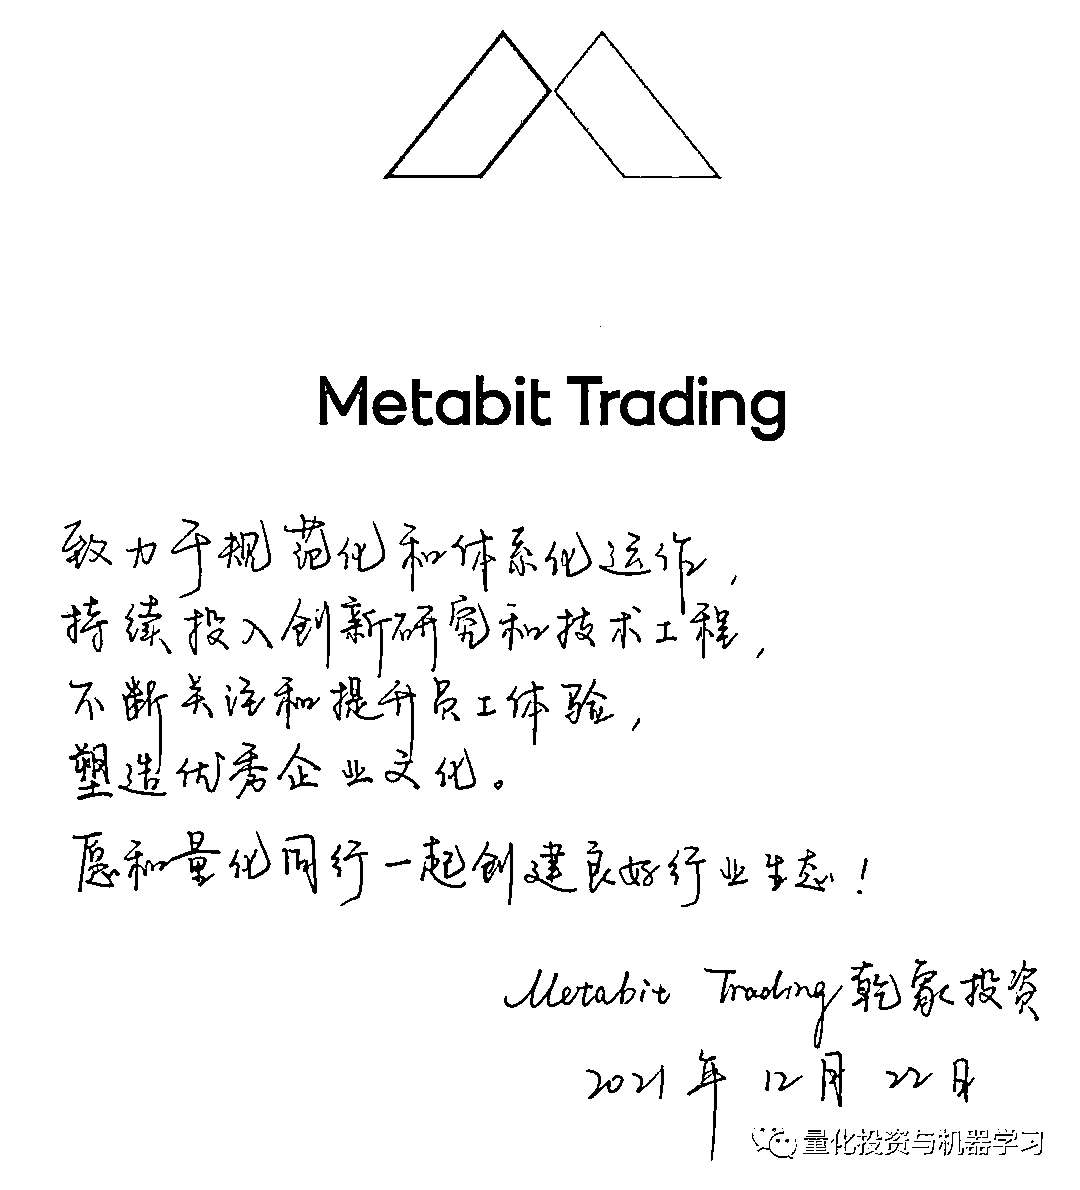 Metabit Trading
致力于规范化和体系化运作,
持续投入创新研究和技术工程,
不断关注和提升员工体验,
塑造优秀企业文化。
愿和量化同行一起创建良好行业生态!
Metabit Trading 乾象投资
2021年 12月 22日
量化投资与机器学习